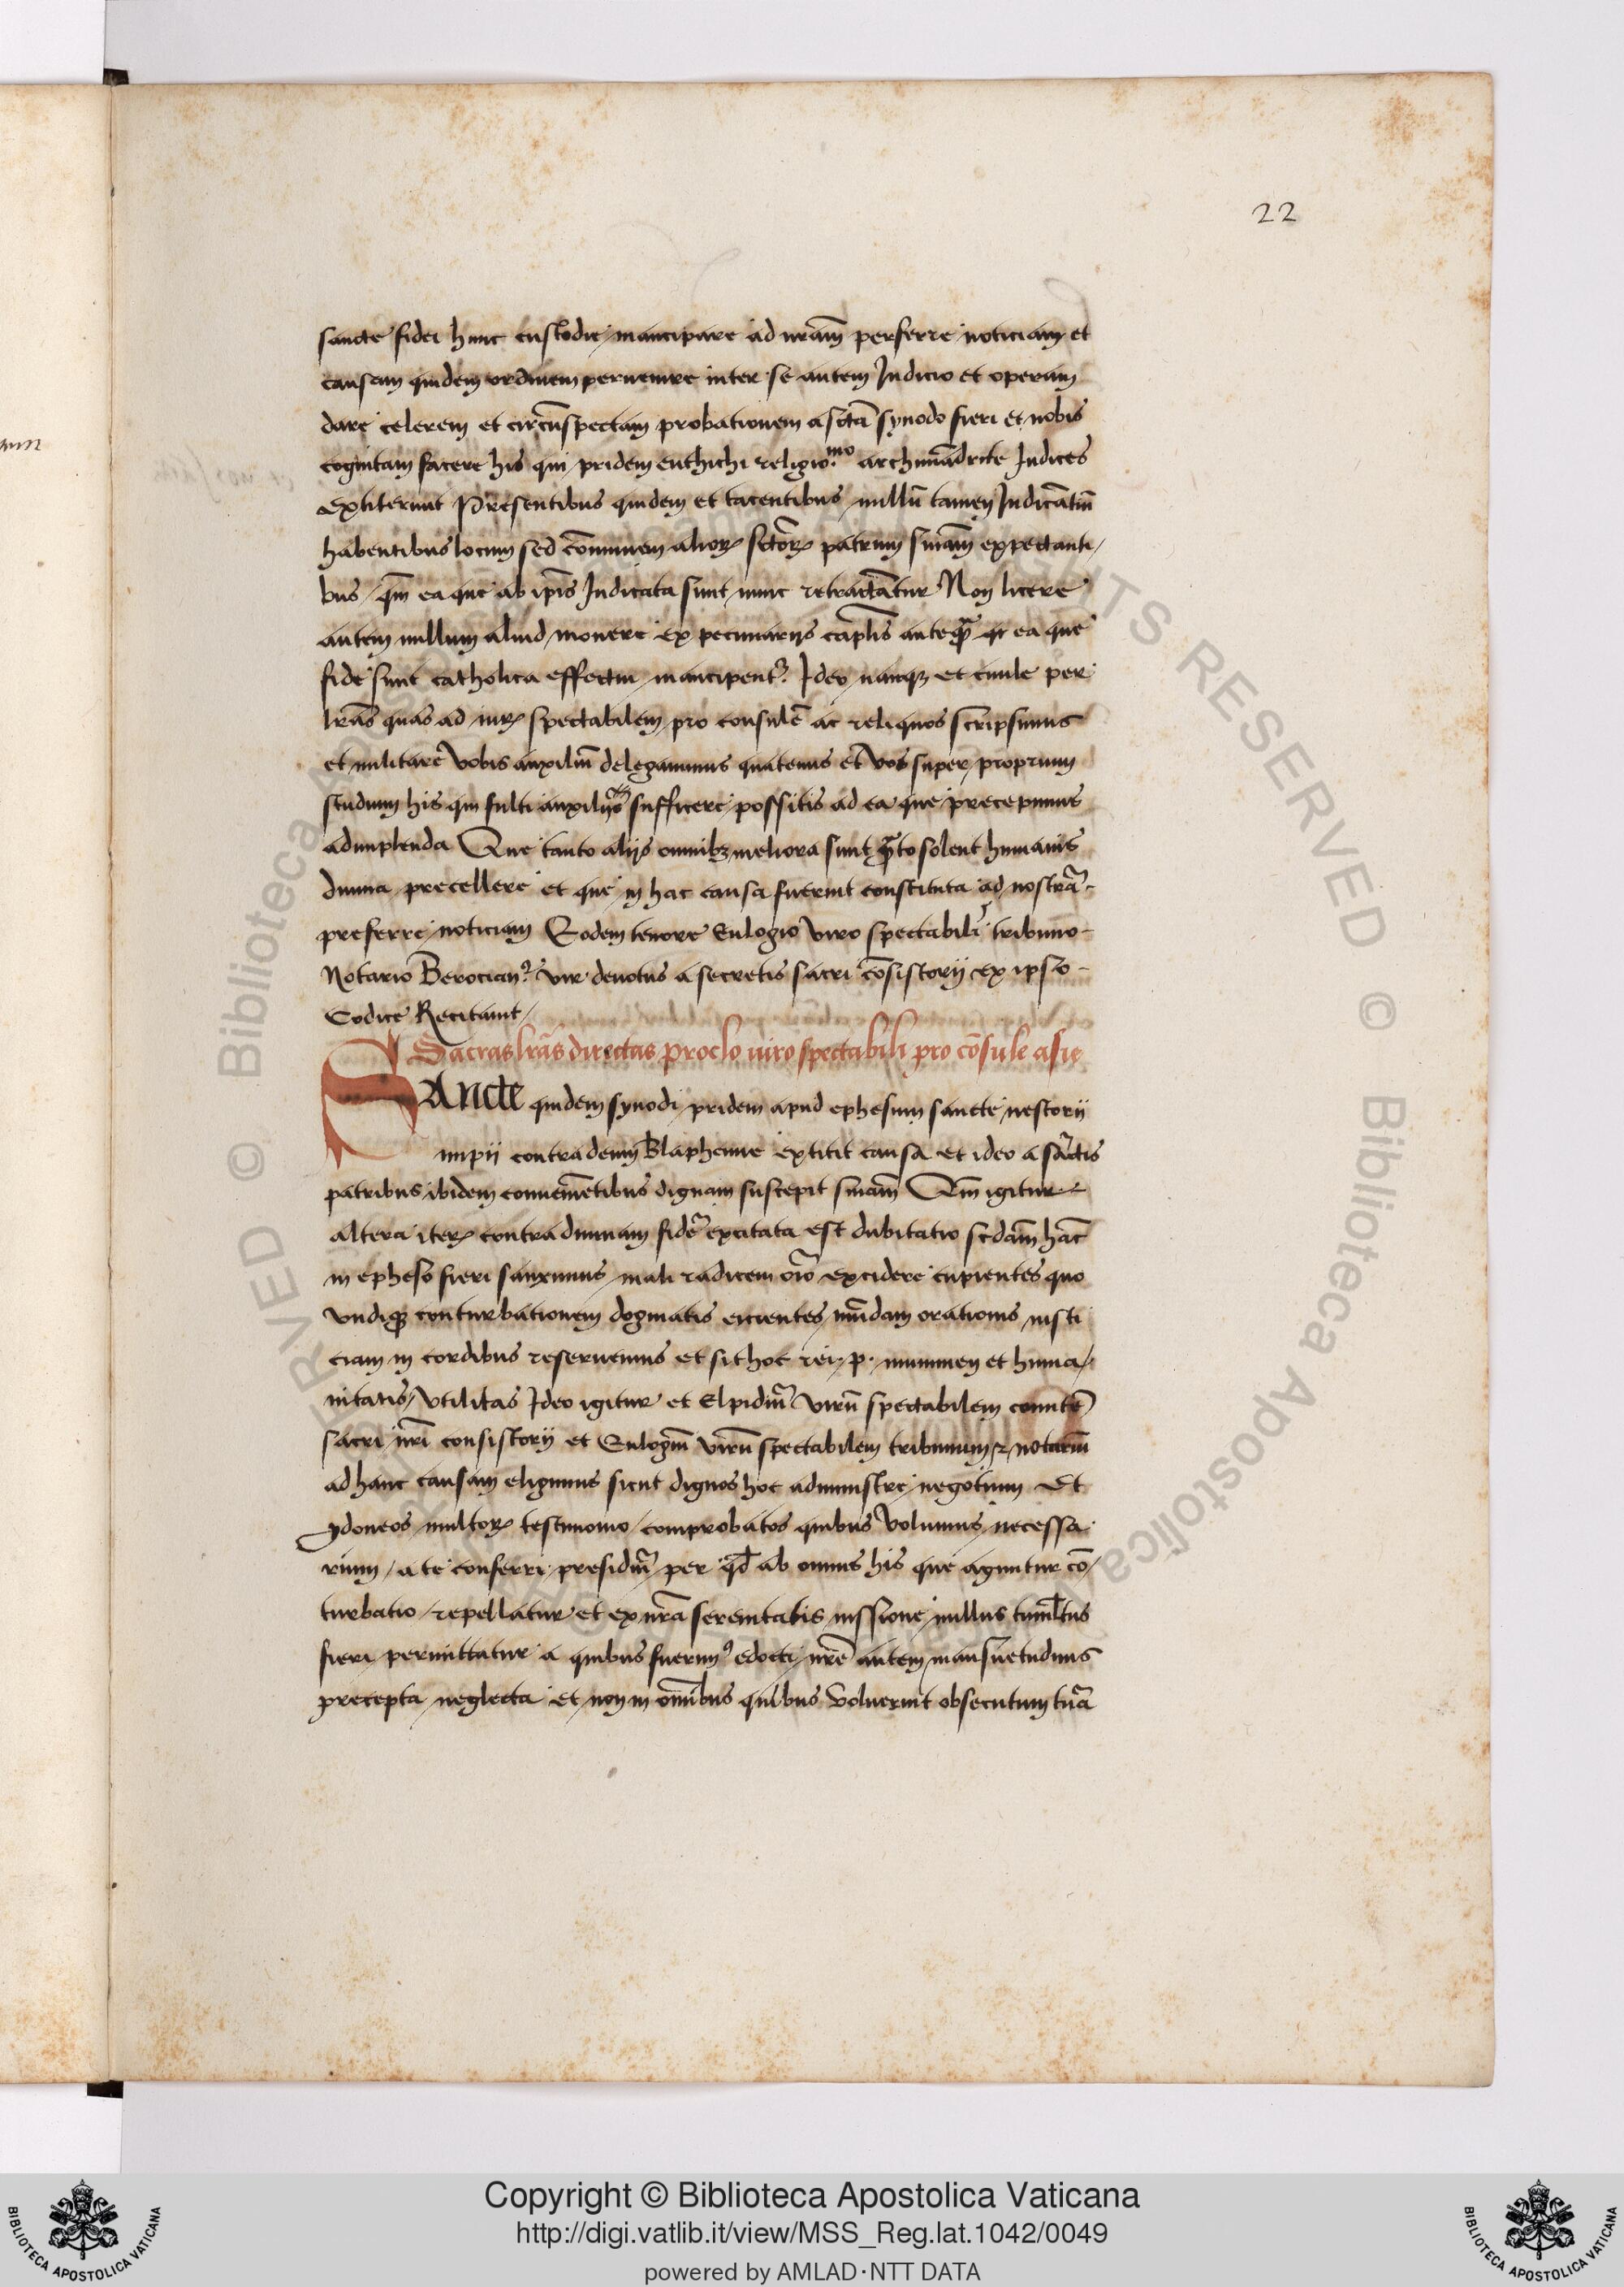 22
sancte fidei hunc custodie mancipare ad nrām perferre noticiam et
causam quidem ordinem peruenire inter se autem Iudicio et operam
dare celerem et circūspectam probationem a sctā synodo fieri et nobis
cognitam facere his qui pridem euthichi religio.mo archimādrite Iudices
extiterunt Presentibus quidem et tacentibus nullū tamen Iudicātiū
habentibus locum sed cōmunem alioꝝ sctōꝝ patrum sniām expectanti/
bus qm̄ ea que ab ip̄is Iudicata sunt nunc retractāntur Non licere
autem nullum aliud monere ex pecuniarijs cap̄lis anteqꝫ ea que
fide sunt catholica effectui mancipent᷑ Ideo namqꝫ et ciuile per
lrās quas ad spectabilem pro consulē ac reliquos scripsimus
et militare vobis auxiliū delegauimus quatenus et vos super proprium
studium his qui fulti auxilijs sufficere possitis ad ea que precepimus
adimplenda Que tanto alijs omnibꝫ meliora sunt qͣ̄to solent humanis
diuina precellere et que in hac causa fuerint constituta ad nostrā
preferre noticiam Eodem tenore Eulogio viro spectabili tribuno
Notario Berocianꝰ vir deuotus a secretis sacri cōsistorij ex ipso
Codice Recitauit/
Sacras lrās directas proclo uiro spectabili pro cōsule asie
SAncte quidem synodi pridem apud ephesum sancte nestorij
impii contra deum Blaphemie extitit causa et ideo a sāctis
patribus ibidem conueniētibus dignam suscepit sniam Qm̄ igitur
altera iteꝝ contra diuinam fidē excitata est dubitatio scdām hāc
in epheso fieri sanximus mali radicem oīo excidere cupientes quo
vndiqꝫ conturbationem dogmatis eicientes mūdam orationis iusti
ciam in cordibus reseruemus et sit hoc rei. p. munimen et huma/
nitatis vtilitas Ideo igitur et Elpidiū virū spectabilem comitē
sacri nrī consistorij et Eulogiū virū spectabilem tribunum ⁊ notariū
ad hanc causam eligimus sicut dignos hoc administre negotium Et
ydoneos multoꝝ testimonio comprobatos quibus volumus necessa
rium a te conferri presidiū per qd̄ ab omnis his que aguntur cō/
turbatio repellatur et ex nrā serenitatis iussione nullus tumltus
fieri permittatur a quibus fuerimꝰ edocti nrē autem mansuetudinis
precepta neglecta et non in omībus quibus voluerint obsecutum tuā
Copyright © Biblioteca Apostolica Vaticana
http://digi.vatlib.it/view/MSS_Reg.lat.1042/0049
powered by AMLAD·NTT DATA